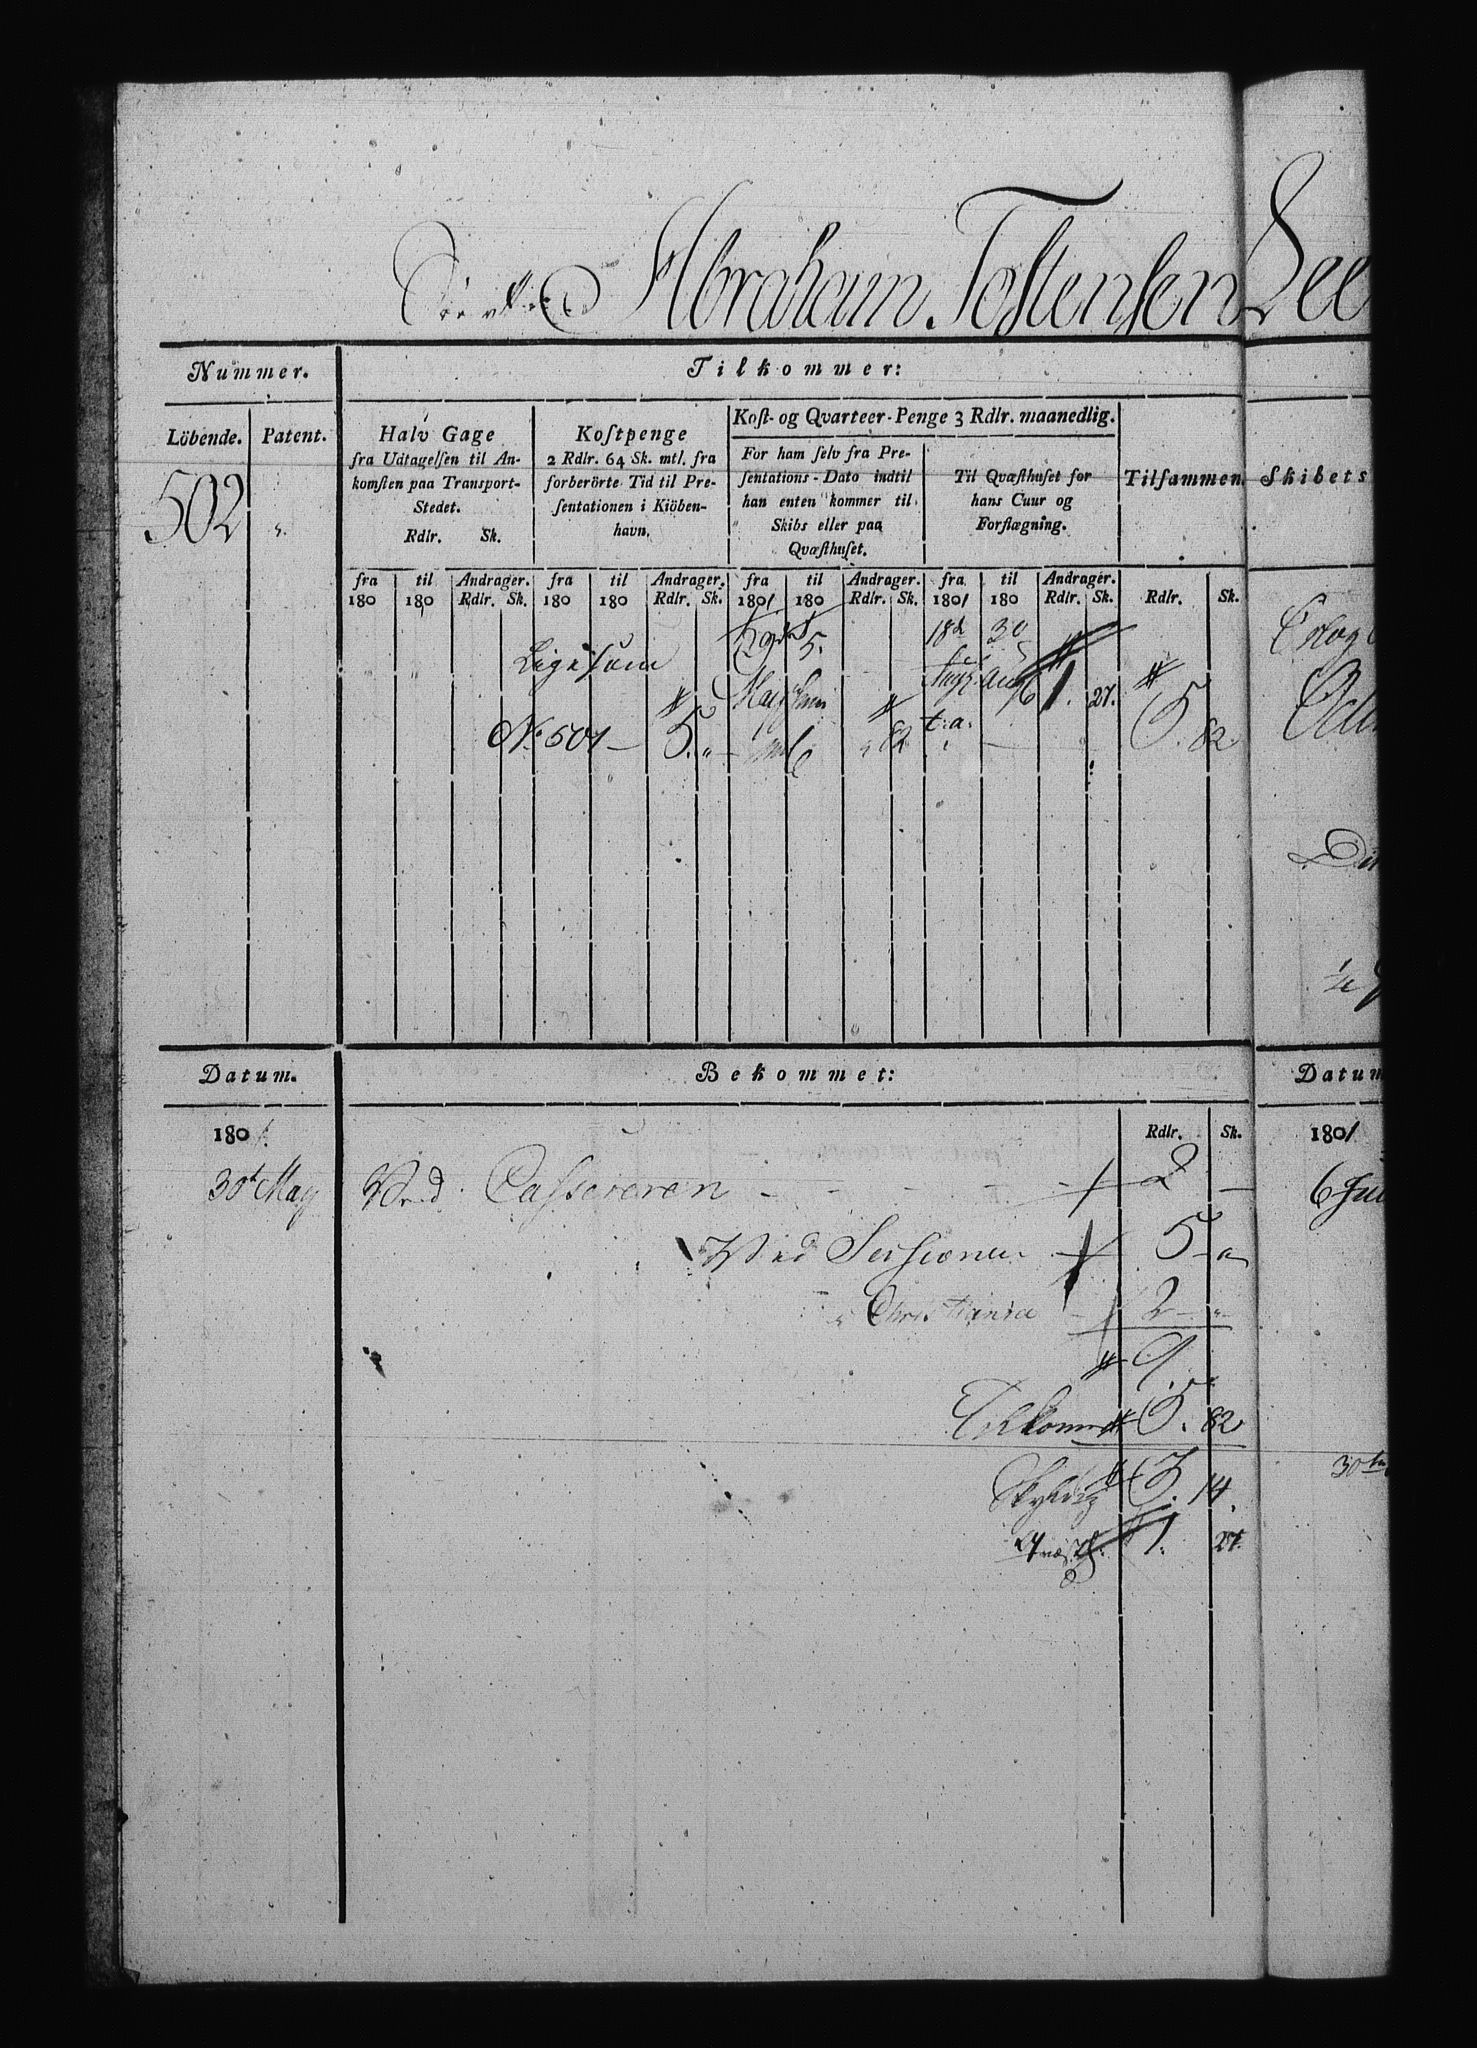 Abraham Tostensen Lee
Nummer. Tilkommer:
Löbende. Patent. Halv Gage fra Udtagelsen til Ankomsten paa Transport-Stedet. Rdlr. Sk.
Kostpenge 2 Rdlr. 64 Sk. mtl. fra forberörte Tid til Presentationen i Kiöbenhavn.
Kost- og Qvarteer-Penge 3 Rdlr. maanedlig.
For ham selv fra Presentations-Dato indtil han enten kommer til Skibs eller paa Qvæsthuset.
Til Qvæsthuset for hans Cuur og Forflægning.
Tilsammen. Skibets
502 "
fra til Andrager. fra til Andrager. fra til Andrager. fra til Andrager.
180 180 Rdlr. Sk. 180 180 Rdlr. Sk. 1801 180 Rdlr. Sk. 1801 180 Rdlr. Sk. Rdlr. Sk.
Ligesom 5. 18d 30
May Juni Aug 1. 27.
No 501 – 5. " " 82 t:a: 5. 82
Datum. Bekommet: Datum
1801. Rdlr. Sk. 1801
30t May Ved Cassereren – – – – 2 – 6 Jul
Ved Sessionen 5 – "
" Christiania – 2 – "
9. "
Tilkom 5. 82
Skyldig 3. 14. 30
Qvæsth: 1. 27.